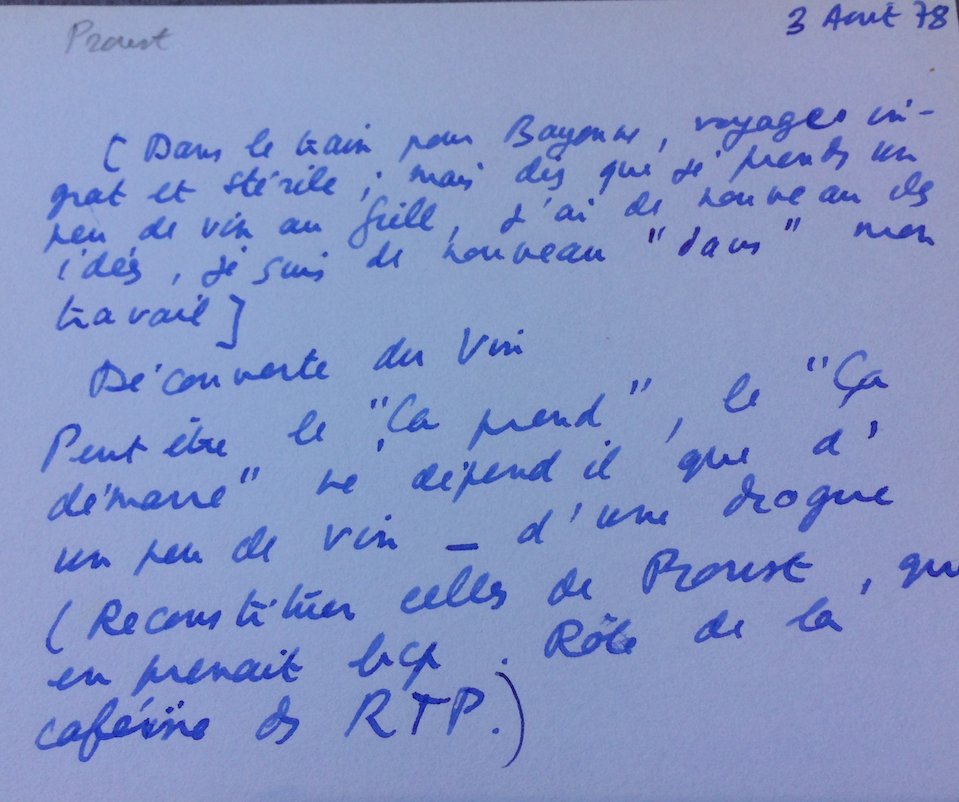 Proust
3 Août 78
[Dans le train pour Bayonne, voyages in-
grat et stérile ; mais dès que je prends un
peu de vin au Grill, j'ai de nouveau des
idées, je suis de nouveau "dans" mon
travail]
Découverte du Vin
Peut être le "Ça prend", le "Ça
démarre" ne dépend il que d'
un peu de vin – d'une drogue
(Reconstituer celles de Proust, qui
en prenait bcp. Rôle de la
caféine ds RTP.)